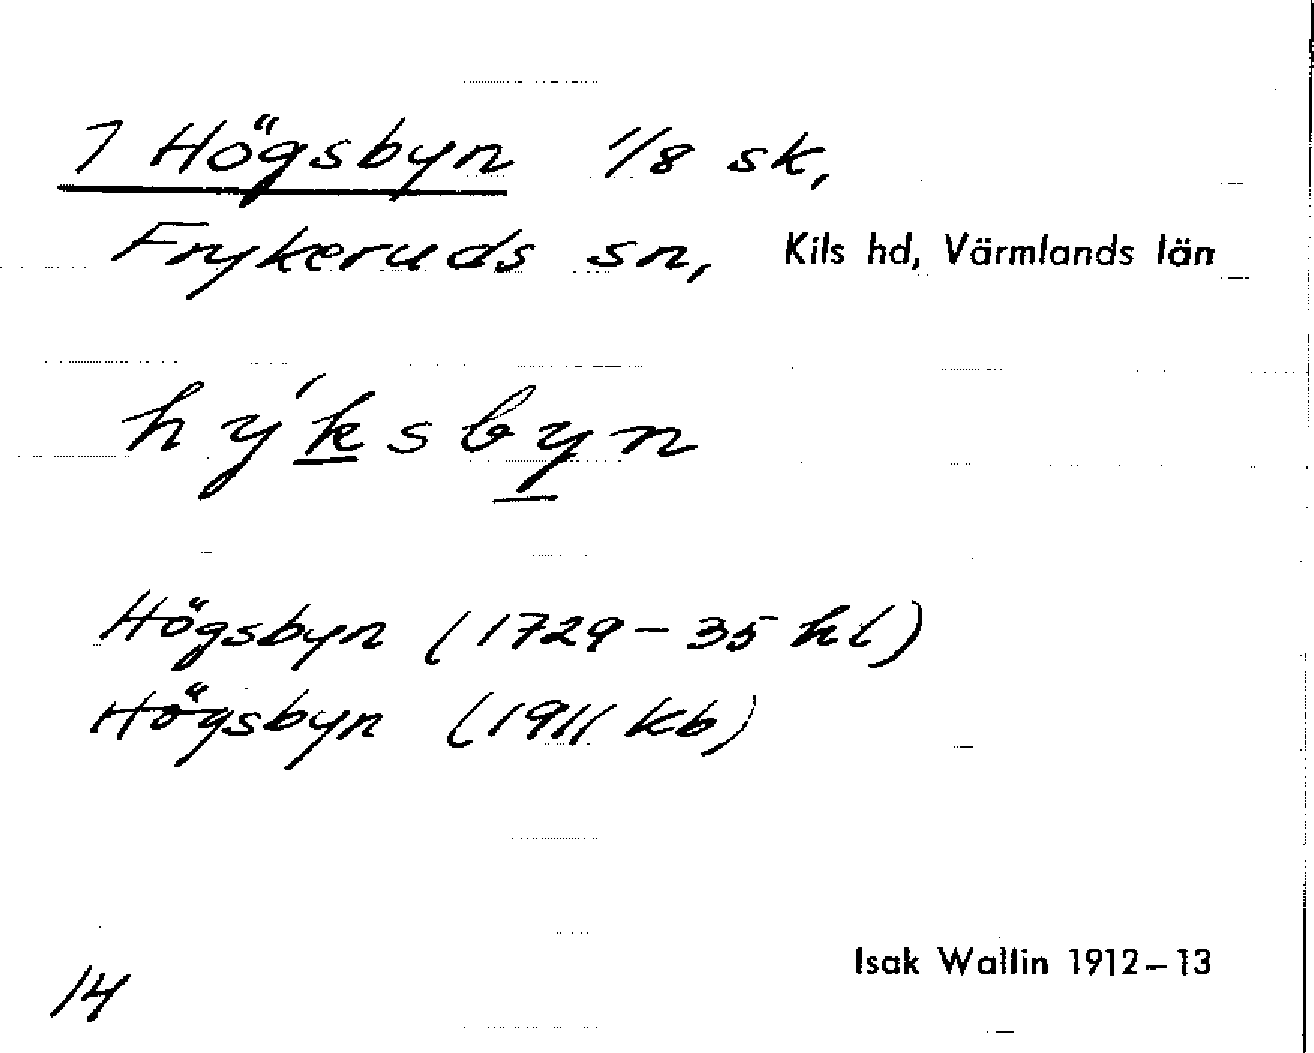 7 Högsbyn 1/8 sk,
Frykeruds sn, Kils hd, Värmlands län
hýksbyn
Högsbyn (1729-35 hl)
Högsbyn (1911 kb)
Isak Wallin 1912–13
14